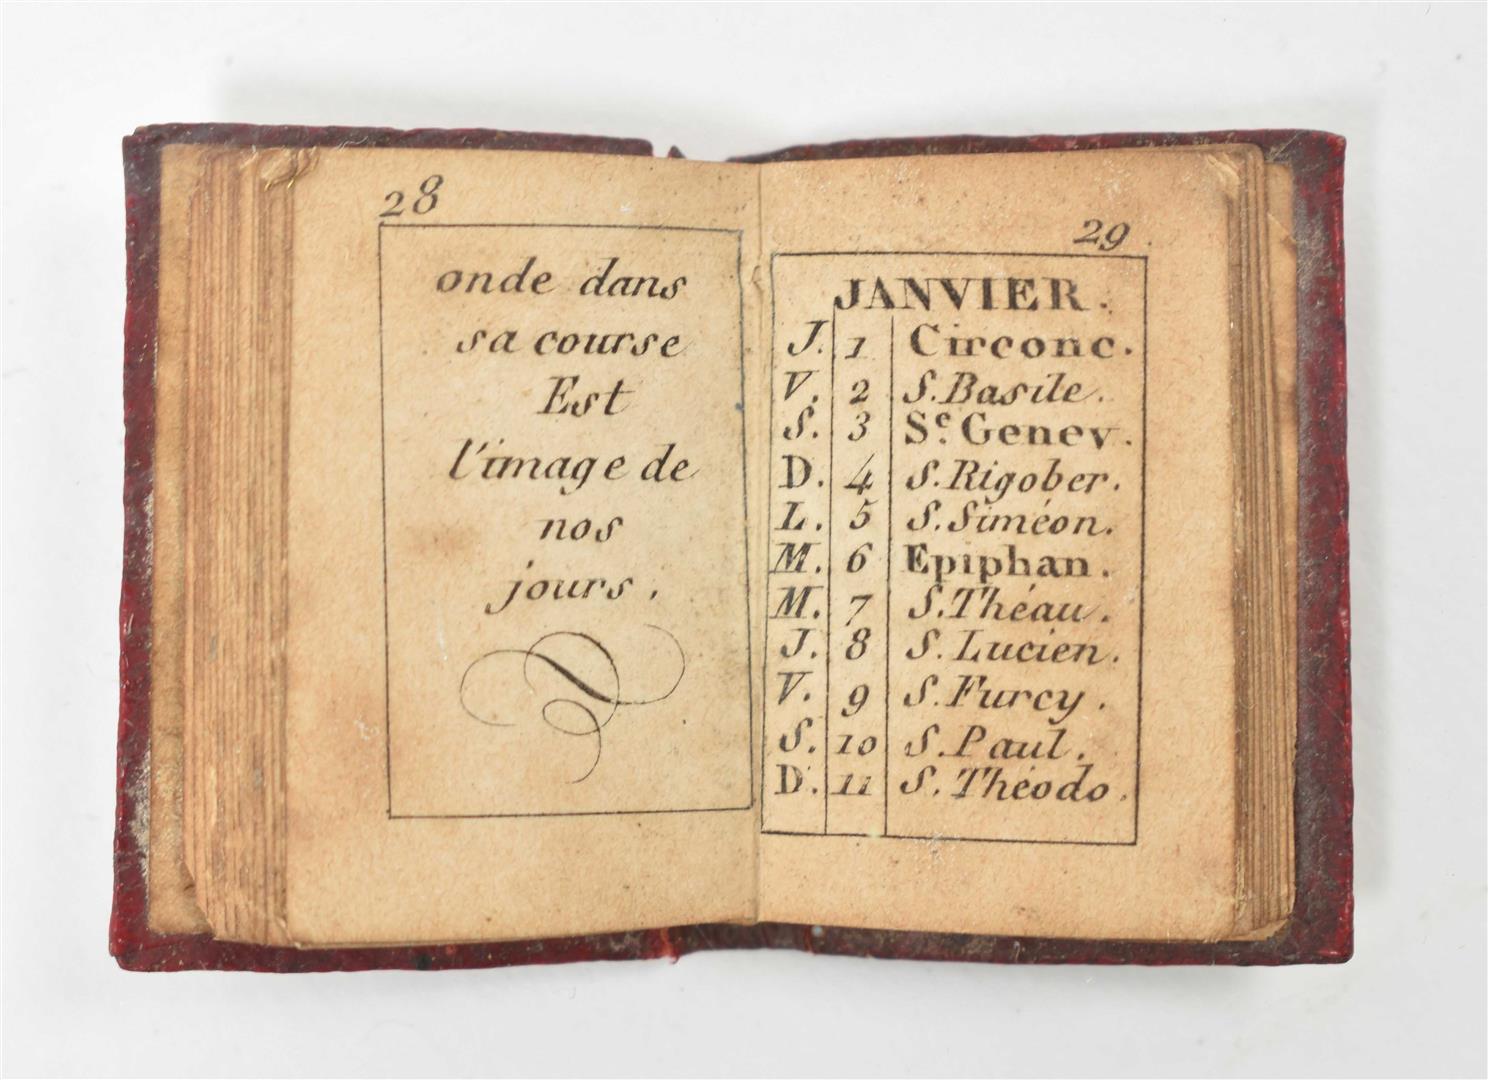 28
onde dans
sa course
Est
l'image de
nos
jours.
29
JANVIER.
J. 1 Circonc.
V. 2 S. Basile.
S. 3 Se. Genev.
D. 4 S. Rigober.
L. 5 S. Siméon.
M. 6 Epiphan.
M. 7 S. Théau.
J. 8 S. Lucien.
V. 9 S. Furcy.
S. 10 S. Paul.
D. 11 S. Théodo.